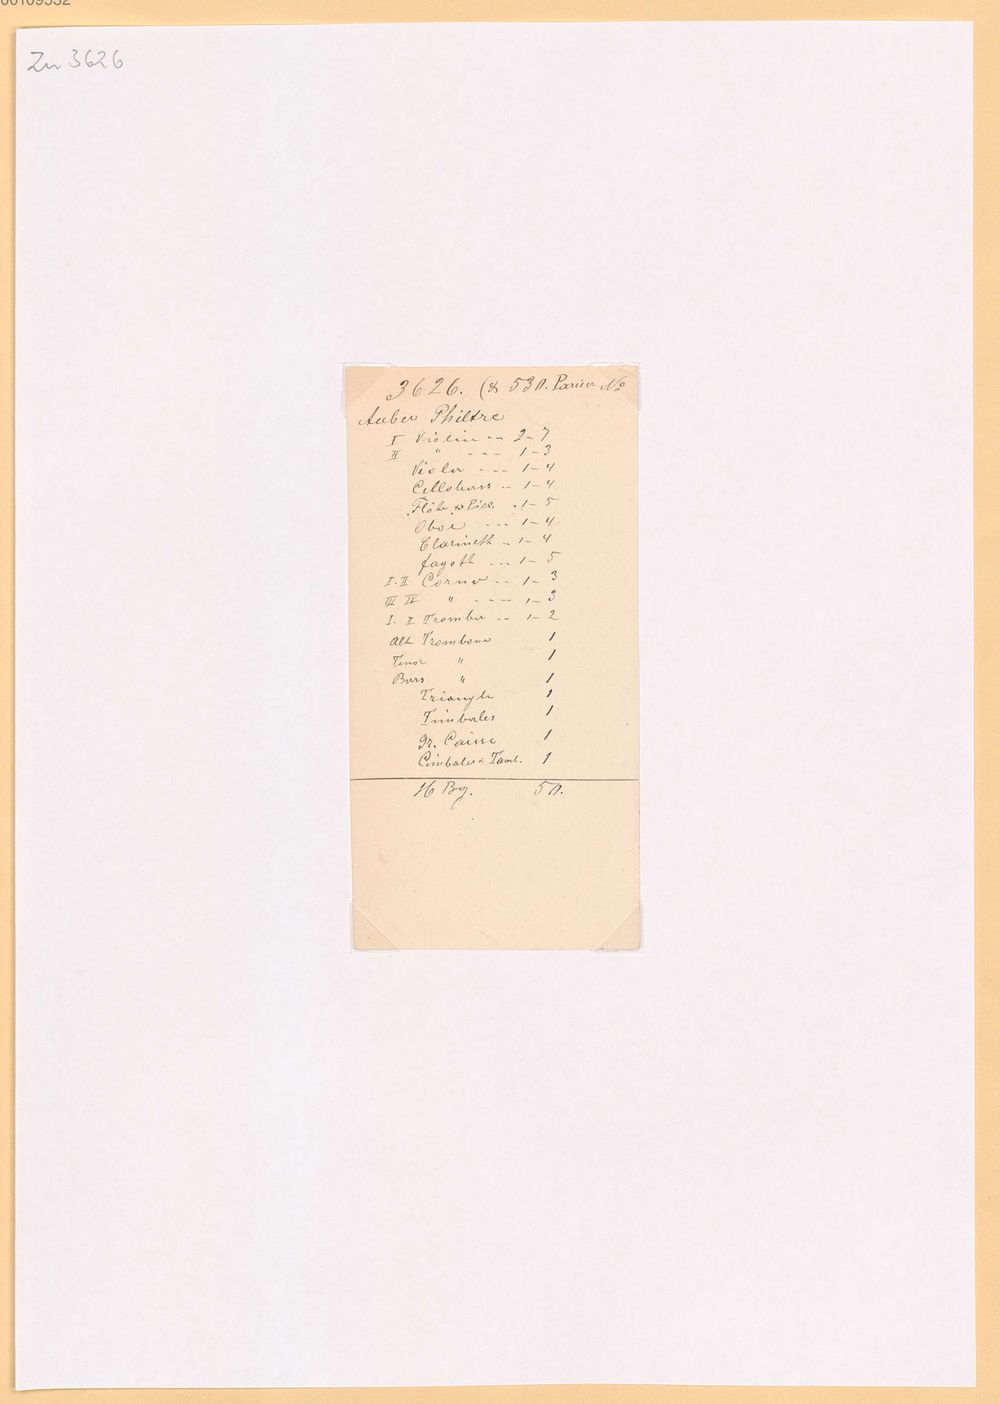 Zu 3626
3626. (& 530. Pariser No
Auber Philtre
I Violin -- 2-7
II " --- 1-3
Viola --- 1-4
Cellobass -- 1-4
Flöte & Picc. . 1-5
Oboe --- 1-4
Clarinett -- 1-4
Fagott --- 1-5
I. II Corno -- 1-3
III IV " ---- 1-3
I. II Tromba -- 1-2
Alt Trombone 1
Tenor " 1
Bass " 1
Triangle 1
Timbales 1
Gr. Caisse 1
Cimbales & Tamt. 1
16 Bg. 50.